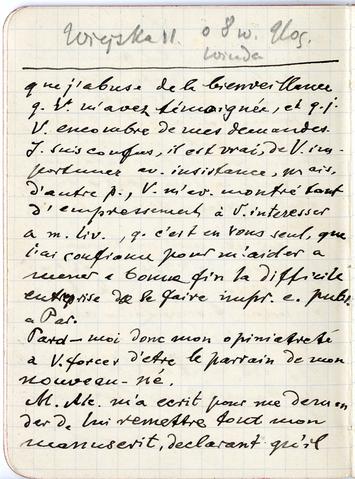 Wiejska 11. o 8 w.
winda
que j'abuse de la bienveillance
q. V. m'avez témoignée, et q. j.
V. encombre de mes demandes.
J. suis confus, il est vrai, de V. im-
portuner av. insistance, mais,
d'autre p., V. m'av. montré tant
d'empressement à V. interesser
a m. liv., q. c'est en vous seul, que
j'ai confiance pour m'aider a
mener a bonne fin la difficile
entreprise de le faire impr. e. publ.
a Par.
Pard-moi donc mon opiniatreté
a V. forcer d'etre le parrain de mon
nouveau-né.
M. Mc. m'a ecrit pour me deman
der de lui remettre tout mon
manuscrit, declarant qu'il